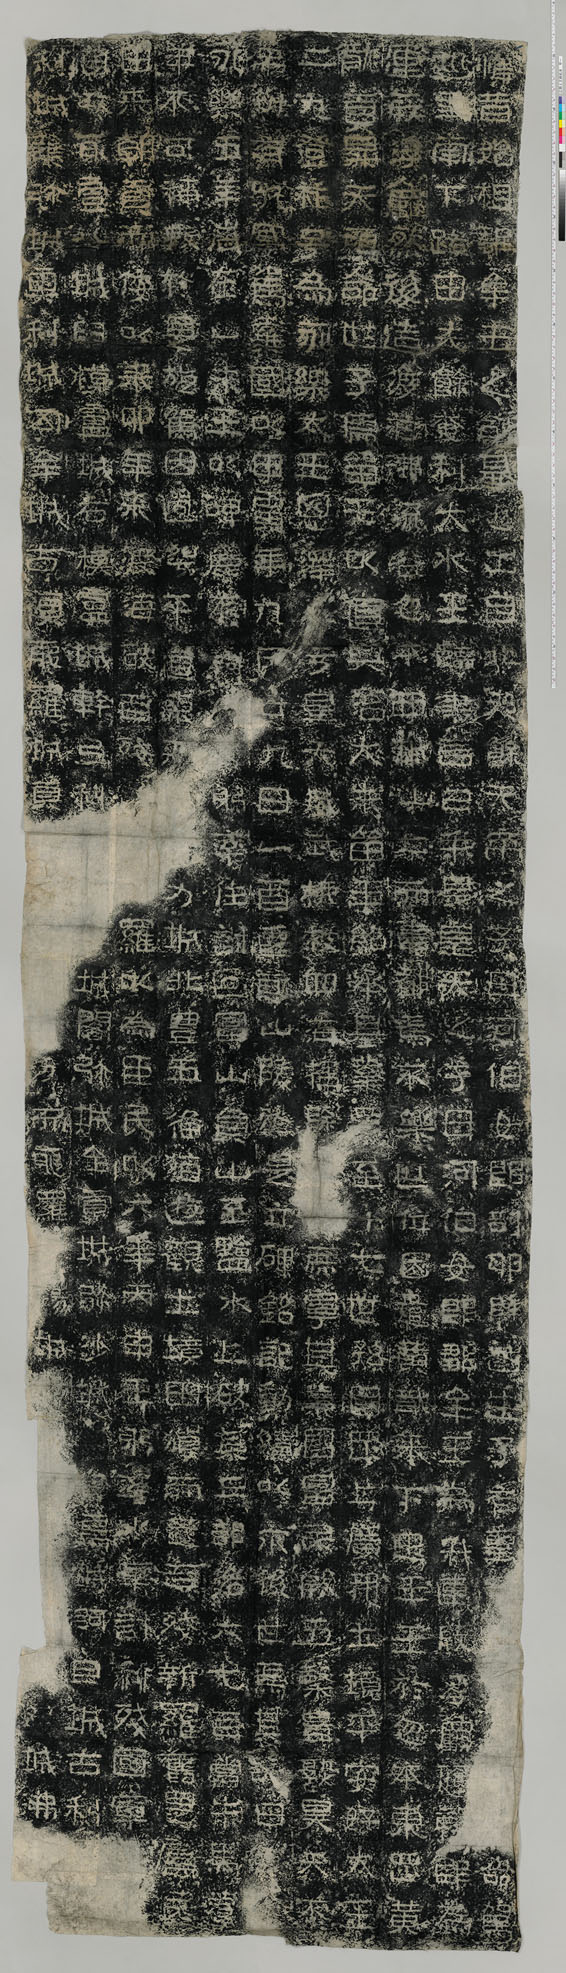 惟昔始祖鄒牟王之創基也出自北夫餘天帝之子母河伯女郎剖卵降世生子有聖命駕
巡幸南下路由夫餘奄利大水王臨津言曰我是皇天之子母河伯女郎鄒牟王爲我連葭浮龜應聲即爲
連葭浮龜然後造渡於沸流谷忽本西城山上而建都焉不樂世位因遣黃龍來下迎王王於忽本東罡黃
龍負昇天顧命世子儒留王以道興治大朱留王紹承基業至十七世孫國罡上廣開土境平安好太王
二九登祚号爲永樂太王恩澤于皇天武威振被四海掃除庶寧其業國富民殷五穀豊熟昊天不
弔卅有九寔駕棄國以甲寅年九月廿九日乙酉遷就山陵於是立碑銘記勳績以示後世焉其辞曰
永樂五年歲在乙未王以碑麗不躬率往討過富山負山至鹽水上破其三部洛六七百營牛馬群
羊不可稱數於是旋駕因過襄平道東來力城北豊五備猶遊觀土境田獵而還百殘新羅舊是屬民
由來朝貢而倭以耒卯年來渡海破百殘羅以爲臣民以六年丙申王躬率水軍討利殘國軍
首攻取壹八城臼模盧城各模盧城幹弖利城閣弥城牟盧城弥沙城蔦城阿旦城古利
利城雜珍城奧利城勾牟城古模耶羅城頁分而耶羅城城沸